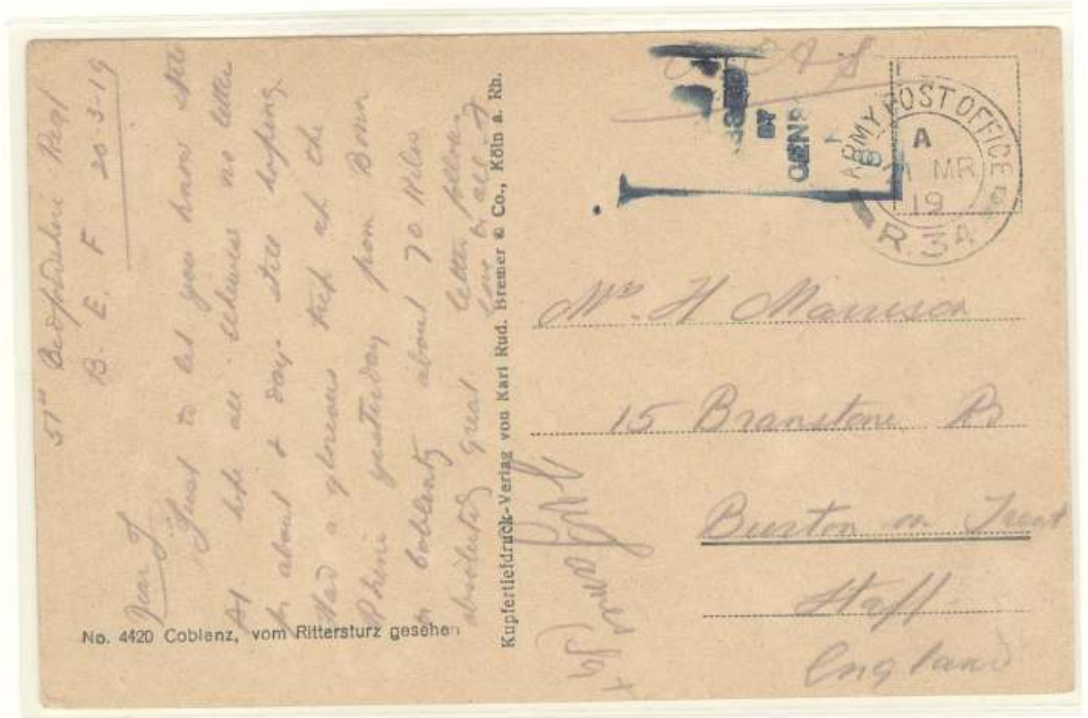 51st Bedfordshire Regt
B. E. F. 20-3-19
Dear J
Just to let you know still
A1 hope all serene no letter
for about 8 days - still hoping
Had a glorious trip up the
Rhine yesterday from Bonn
to Coblentz about 70 Miles
absolutely great. letter follows
love to all
No. 4420 Coblenz, vom Rittersturz gesehen
Kupfertiefdruck-Verlag von Karl Rud. Bremer & Co., Köln a. Rh.
O A S
BY
CENS
ARMY POST OFFICE
A
MR
19
R.34
H
15 Branstone Rd
Burton on Trent
Staff
England